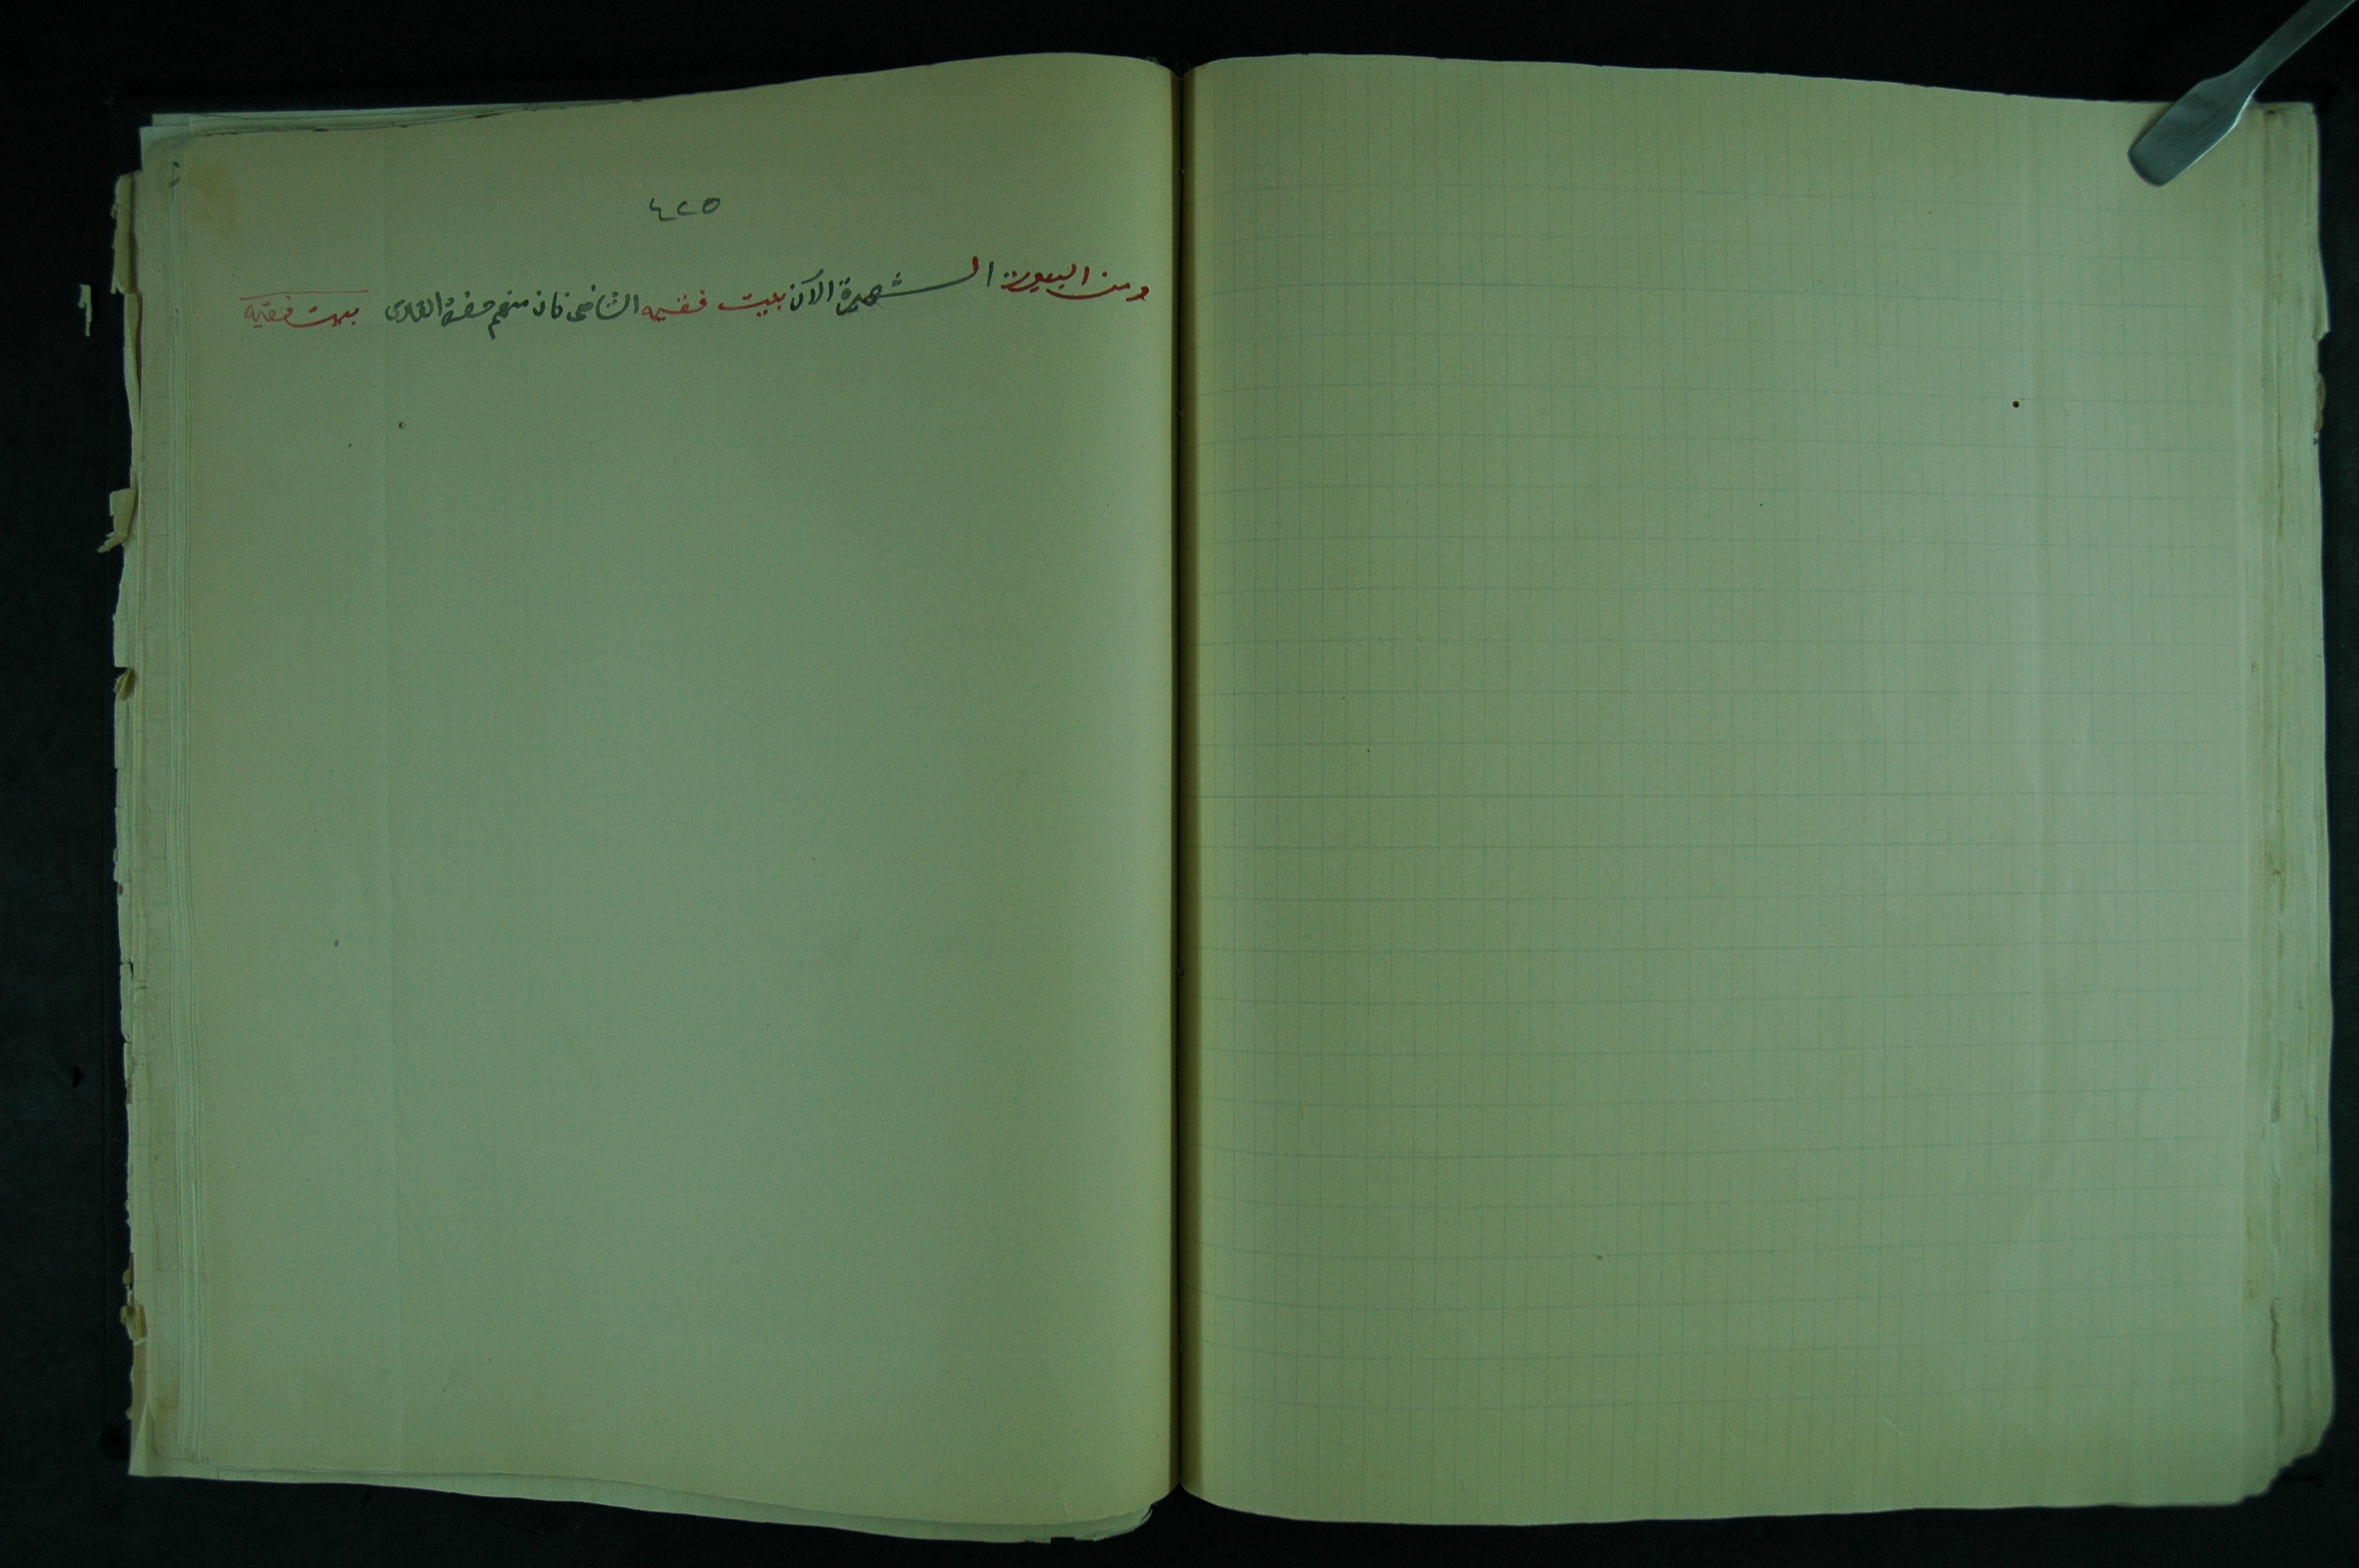 ٤٢٥
ومن البيوت الشهيرة الآن بيت فقيه الشافعى فان منهم حضرة القارى
بيت فقيه